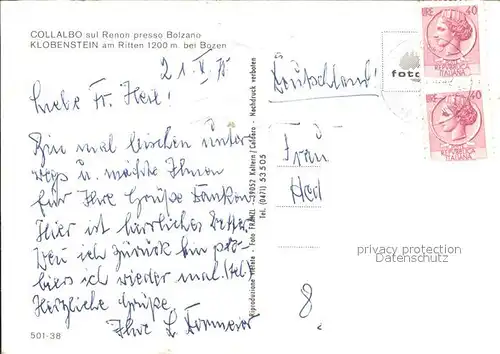 COLLALBO sul Renon presso Bolzano
KLOBENSTEIN am Ritten 1200 m. bei Bozen
21.V.75
Liebe Fr. Heil!
Bin mal bisschen unter
wegs u. möchte Ihnen
für Ihre Grüße danken.
Hier ist herrliches Wetter.
Wen ich zurück bin pro-
biers ich wieder mal.
Herzliche Grüße
Ihre L.
501-38
Riproduzione vietata - Foto - 39052 Kaltern/Caldaro - Nachdruck verboten
Tel. (0471) 53505
Deutschland!
foto
LIRE 40
REPUBBLICA
ITALIANA
40
REPUBBLICA
ITALIANA
Frau
Heil
privacy protection
Datenschutz
8